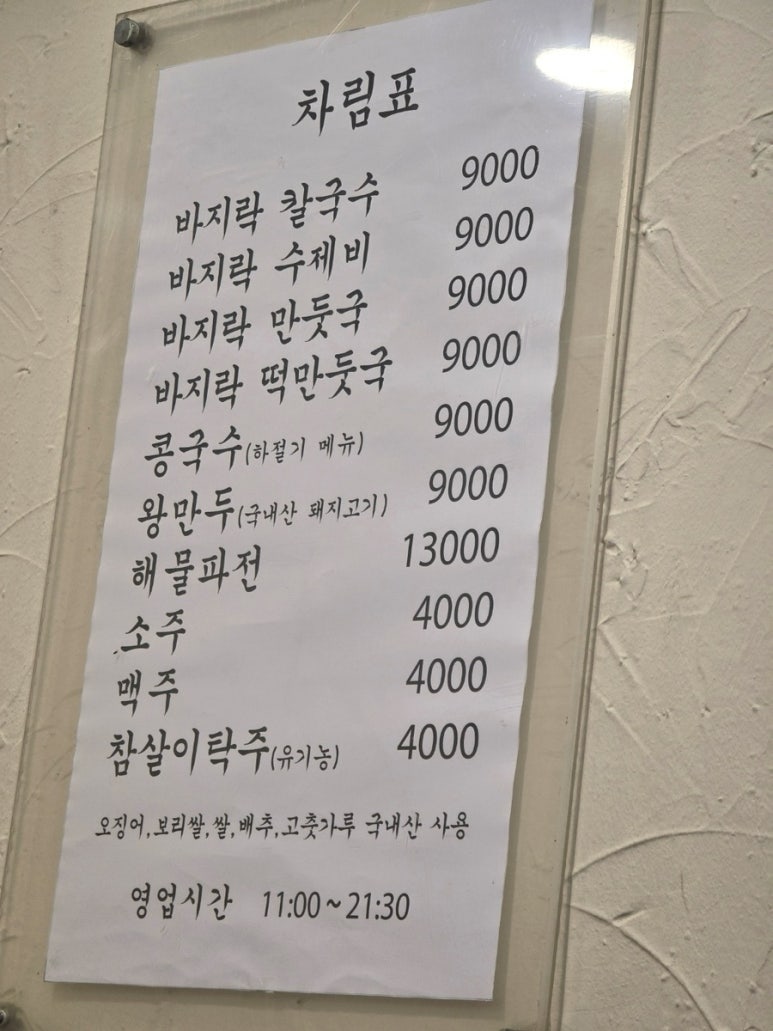 차림표
바지락 칼국수 9000
바지락 수제비 9000
바지락 만둣국 9000
바지락 떡만둣국 9000
콩국수(하절기 메뉴) 9000
왕만두(국내산 돼지고기) 9000
해물파전 13000
소주 4000
맥주 4000
참살이탁주(유기농) 4000
오징어,보리쌀,쌀,배추,고춧가루 국내산 사용
영업시간 11:00~21:30